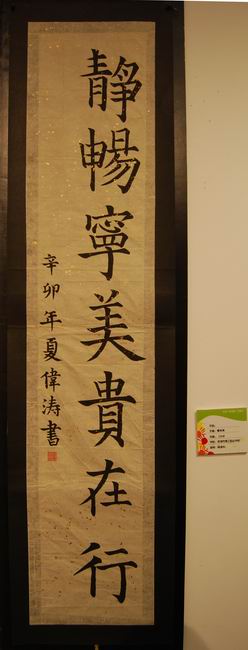 靜暢寧美貴在行
辛卯年夏偉涛書